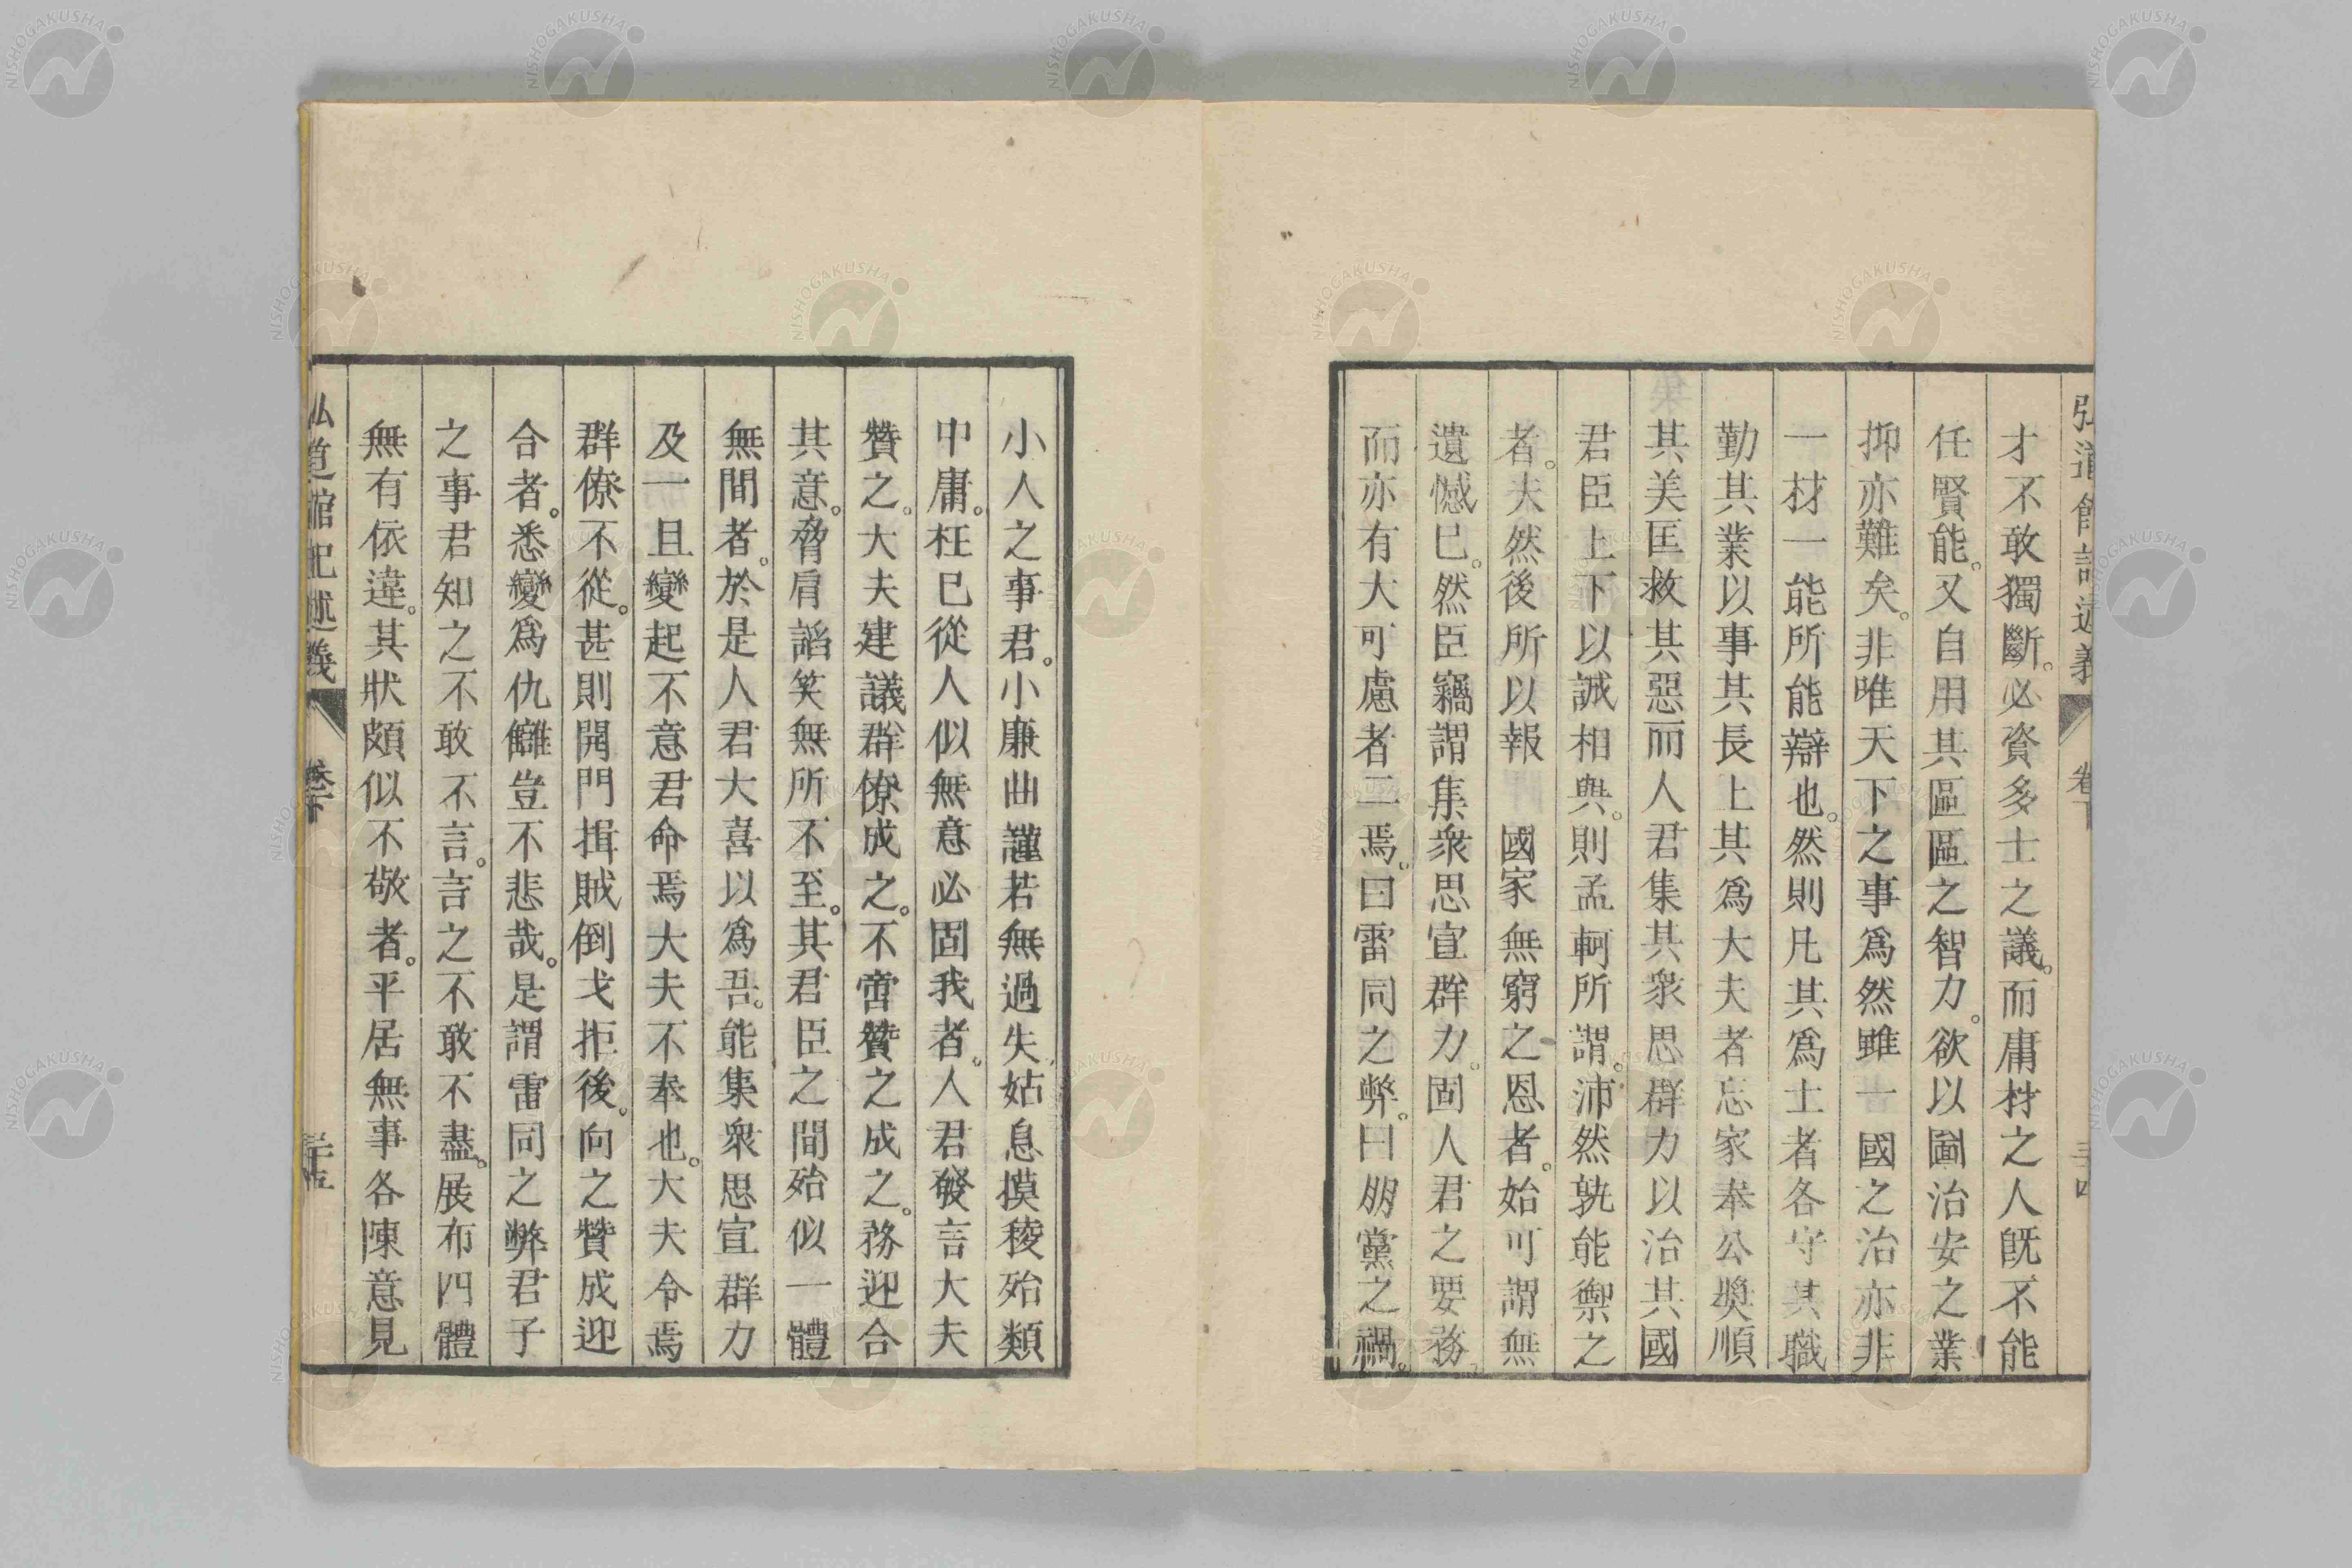 弘道館記述義 卷下 三十四
才不敢獨斷。必資多士之議。而庸材之人旣不能
任賢能。又自用其區區之智力。欲以圖治安之業
抑亦難矣。非唯天下之事爲然雖一國之治亦非
一材一能所能辯也。然則凡其爲士者各守其職
勤其業以事其長上其爲大夫者忘家奉公奬順
其美匡救其惡而人君集其衆思群力以治其國
君臣上下以誠相與。則孟軻所謂。沛然孰能禦之
者。夫然後所以報 國家無窮之恩者。始可謂無
遺憾已。然臣竊謂集衆思宣群力。固人君之要務
而亦有大可慮者二焉。曰雷同之弊。曰朋黨之禍。
小人之事君。小廉曲謹若無過失姑息摸稜殆類
中庸。枉已從人似無意必固我者。人君發言大夫
贊之。大夫建議群僚成之。不啻贊之成之。務迎合
其意。脅肩諂笑無所不至。其君臣之間殆似一體
無間者。於是人君大喜以爲吾。能集衆思宣群力
及一旦變起不意君命焉大夫不奉也。大夫令焉
群僚不從。甚則開門揖賊倒戈拒後。向之贊成迎
合者。悉變爲仇讎豈不悲哉。是謂雷同之弊君子
之事君知之不敢不言。言之不敢不盡。展布四體
無有依違。其狀頗似不敬者。平居無事各陳意見
弘道館記述義 卷下 三十五
NISHOGAKUSHA